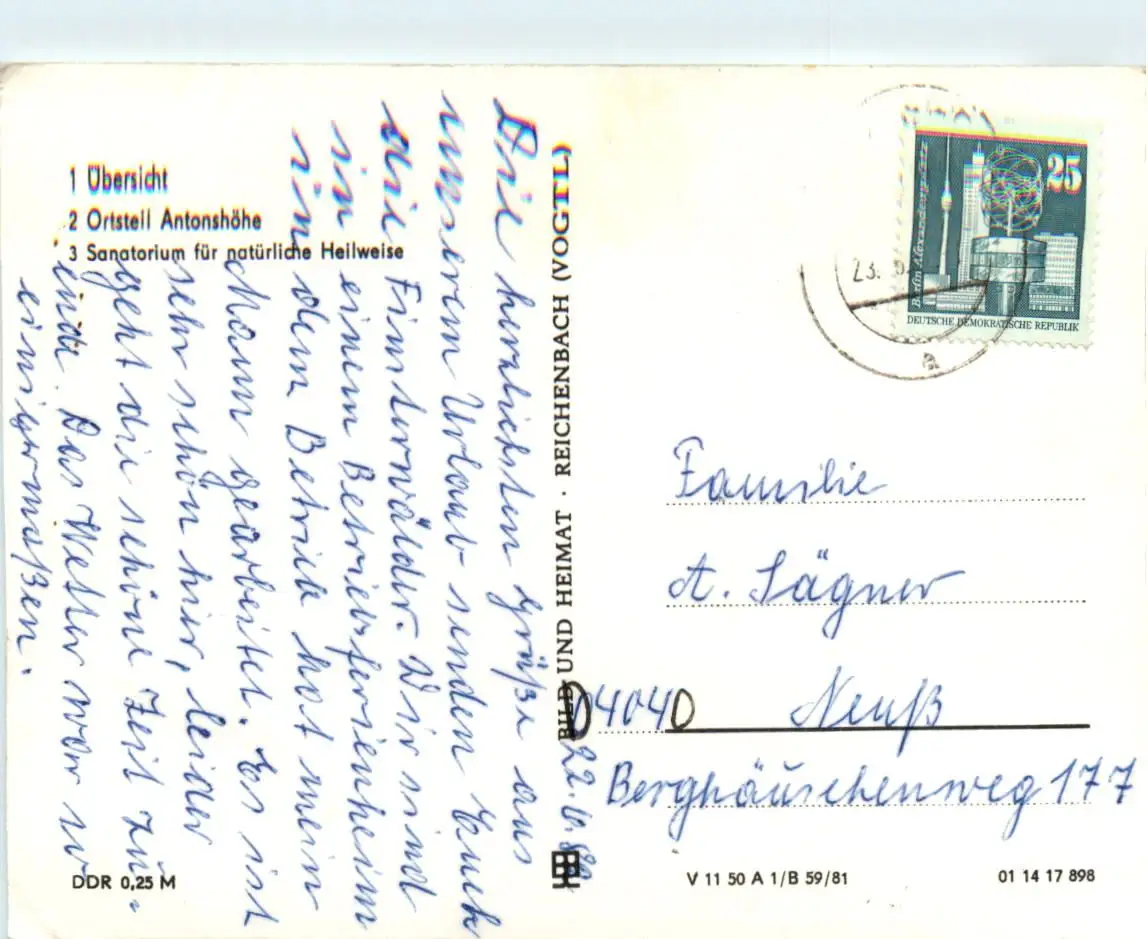 1 Übersicht
2 Ortsteil Antonshöhe
3 Sanatorium für natürliche Heilweise
Die herzlichsten Grüße aus
unserem Urlaub senden Euch
die Finsterwälder. Wir sind
in einem Betriebsferienheim
in dem Betrieb hat mein
Mann gearbeitet. Es ist
sehr schön hier, leider
geht die schöne Zeit zu
ende. Das Wetter war so
einigermaßen.
BILD UND HEIMAT · REICHENBACH (VOGTL)
22.
25
Berlin Alexanderplatz
DEUTSCHE DEMOKRATISCHE REPUBLIK
23.
a
Familie
A. Sägner
D4040 Neuß
Berghäuschenweg 177
DDR 0,25 M
V 11 50 A 1/B 59/81
01 14 17 898